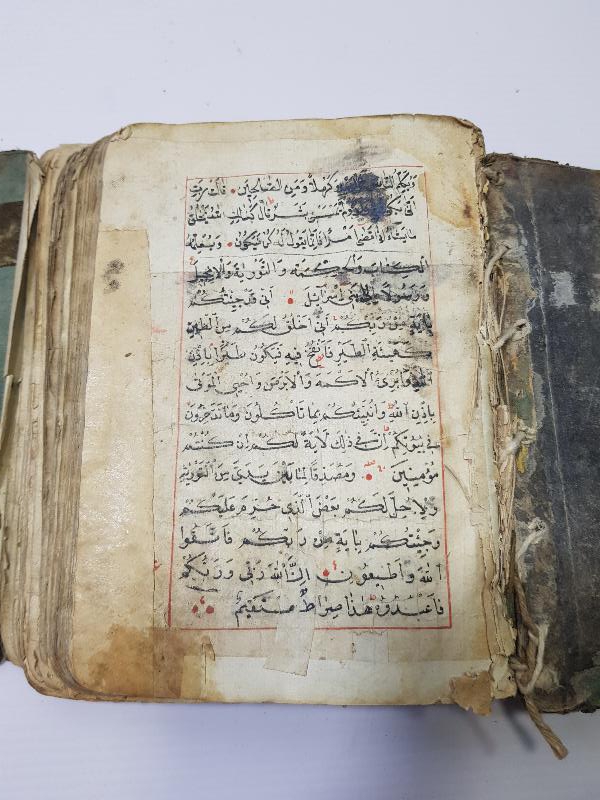 وَيُكَلِّمُ النَّاسَ وَكَهْلًا وَمِنَ الصَّالِحِينَ قَالَتْ رَبِّ
أَنَّى يَكُونُ يَمْسَسْنِي بَشَرٌ قَالَ كَذٰلِكِ اللهُ يَخْلُقُ
مَا يَشَاءُ إِذَا قَضَى أَمْرًا فَإِنَّمَا يَقُولُ لَهُ كُنْ فَيَكُونُ وَيُعَلِّمُهُ
الْكِتَابَ وَالْحِكْمَةَ وَالتَّوْرٰيةَ وَالْإِنْجِيلَ
وَرَسُولًا إِلَى بَنِي إِسْرَائِيلَ أَنِّي قَدْ جِئْتُكُمْ
بِآيَةٍ مِنْ رَبِّكُمْ أَنِّي أَخْلُقُ لَكُمْ مِنَ الطِّينِ
كَهَيْئَةِ الطَّيْرِ فَأَنْفُخُ فِيهِ فَيَكُونُ طَيْرًا بِإِذْنِ
اللهِ وَأُبْرِئُ الْأَكْمَهَ وَالْأَبْرَصَ وَأُحْيِي الْمَوْتَى
بِإِذْنِ اللهِ وَأُنَبِّئُكُمْ بِمَا تَأْكُلُونَ وَمَا تَدَّخِرُونَ
فِي بُيُوتِكُمْ إِنَّ فِي ذٰلِكَ لَآيَةً لَكُمْ إِنْ كُنْتُمْ
مُؤْمِنِينَ وَمُصَدِّقًا لِمَا بَيْنَ يَدَيَّ مِنَ التَّوْرٰيةِ
وَلِأُحِلَّ لَكُمْ بَعْضَ الَّذِي حُرِّمَ عَلَيْكُمْ
وَجِئْتُكُمْ بِآيَةٍ مِنْ رَبِّكُمْ فَاتَّقُوا
اللهَ وَأَطِيعُونِ إِنَّ اللهَ رَبِّي وَرَبُّكُمْ
فَاعْبُدُوهُ هٰذَا صِرَاطٌ مُسْتَقِيمٌ